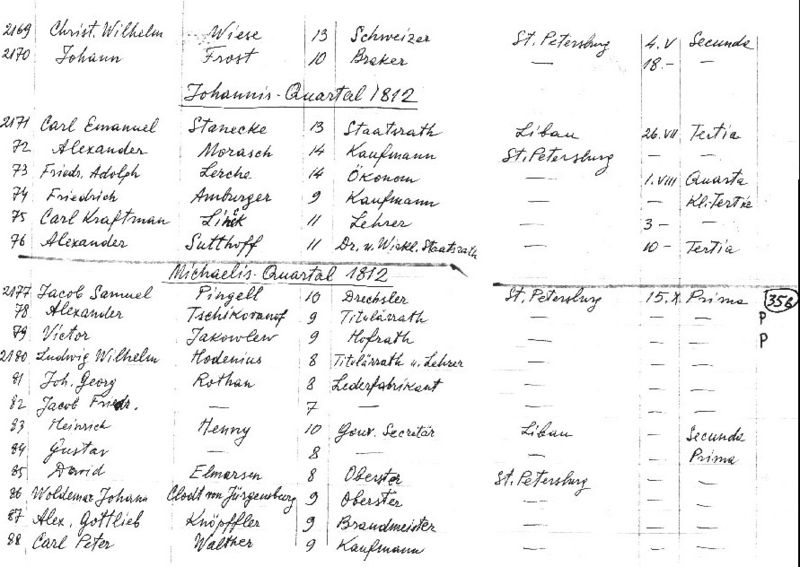 2169 Christ. Wilhelm Wiese 13 Schweizer St. Petersburg 4. V Secunda
2170 Johann Frost 10 Braker — 18. – —
Johannis-Quartal 1812
2171 Carl Emanuel Stanecke 13 Staatsrath Libau 26. VII Tertia
72 Alexander Morasch 14 Kaufmann St. Petersburg — —
73 Friedr. Adolph Lerche 14 Ökonom — 1. VIII Quarta
74 Friedrich Amburger 9 Kaufmann — — Kl. Tertia
75 Carl Kraftman 11 Lehrer — 3 – —
76 Alexander Sutthoff 11 Dr. u. Wirkl. Staatsrath — 10 – Tertia
Michaelis-Quartal 1812
2177 Jacob Samuel Pingell 10 Drechsler St. Petersburg 15. X. Prima 356
78 Alexander Tschikovanof 9 Titulärrath — — — P
79 Victor Jakowlew 9 Hofrath — — — P
2180 Ludwig Wilhelm Hodenius 8 Titulärrath u. Lehrer — — —
81 Joh. Georg Rothan 8 Lederfabrikant — — —
82 Jacob Friedr. — 7 — — — —
83 Heinrich Henny 10 Gouv. Secretär Libau — Secunda
84 Gustav — 8 — — — Prima
85 David Elmarsen 8 Oberster St. Petersburg — —
86 Woldemar Johann Clodt von Jürgensburg 9 Oberster — — —
87 Alex. Gottlieb Knöpffler 9 Brandmeister — — —
88 Carl Peter Walther 9 Kaufmann — — —